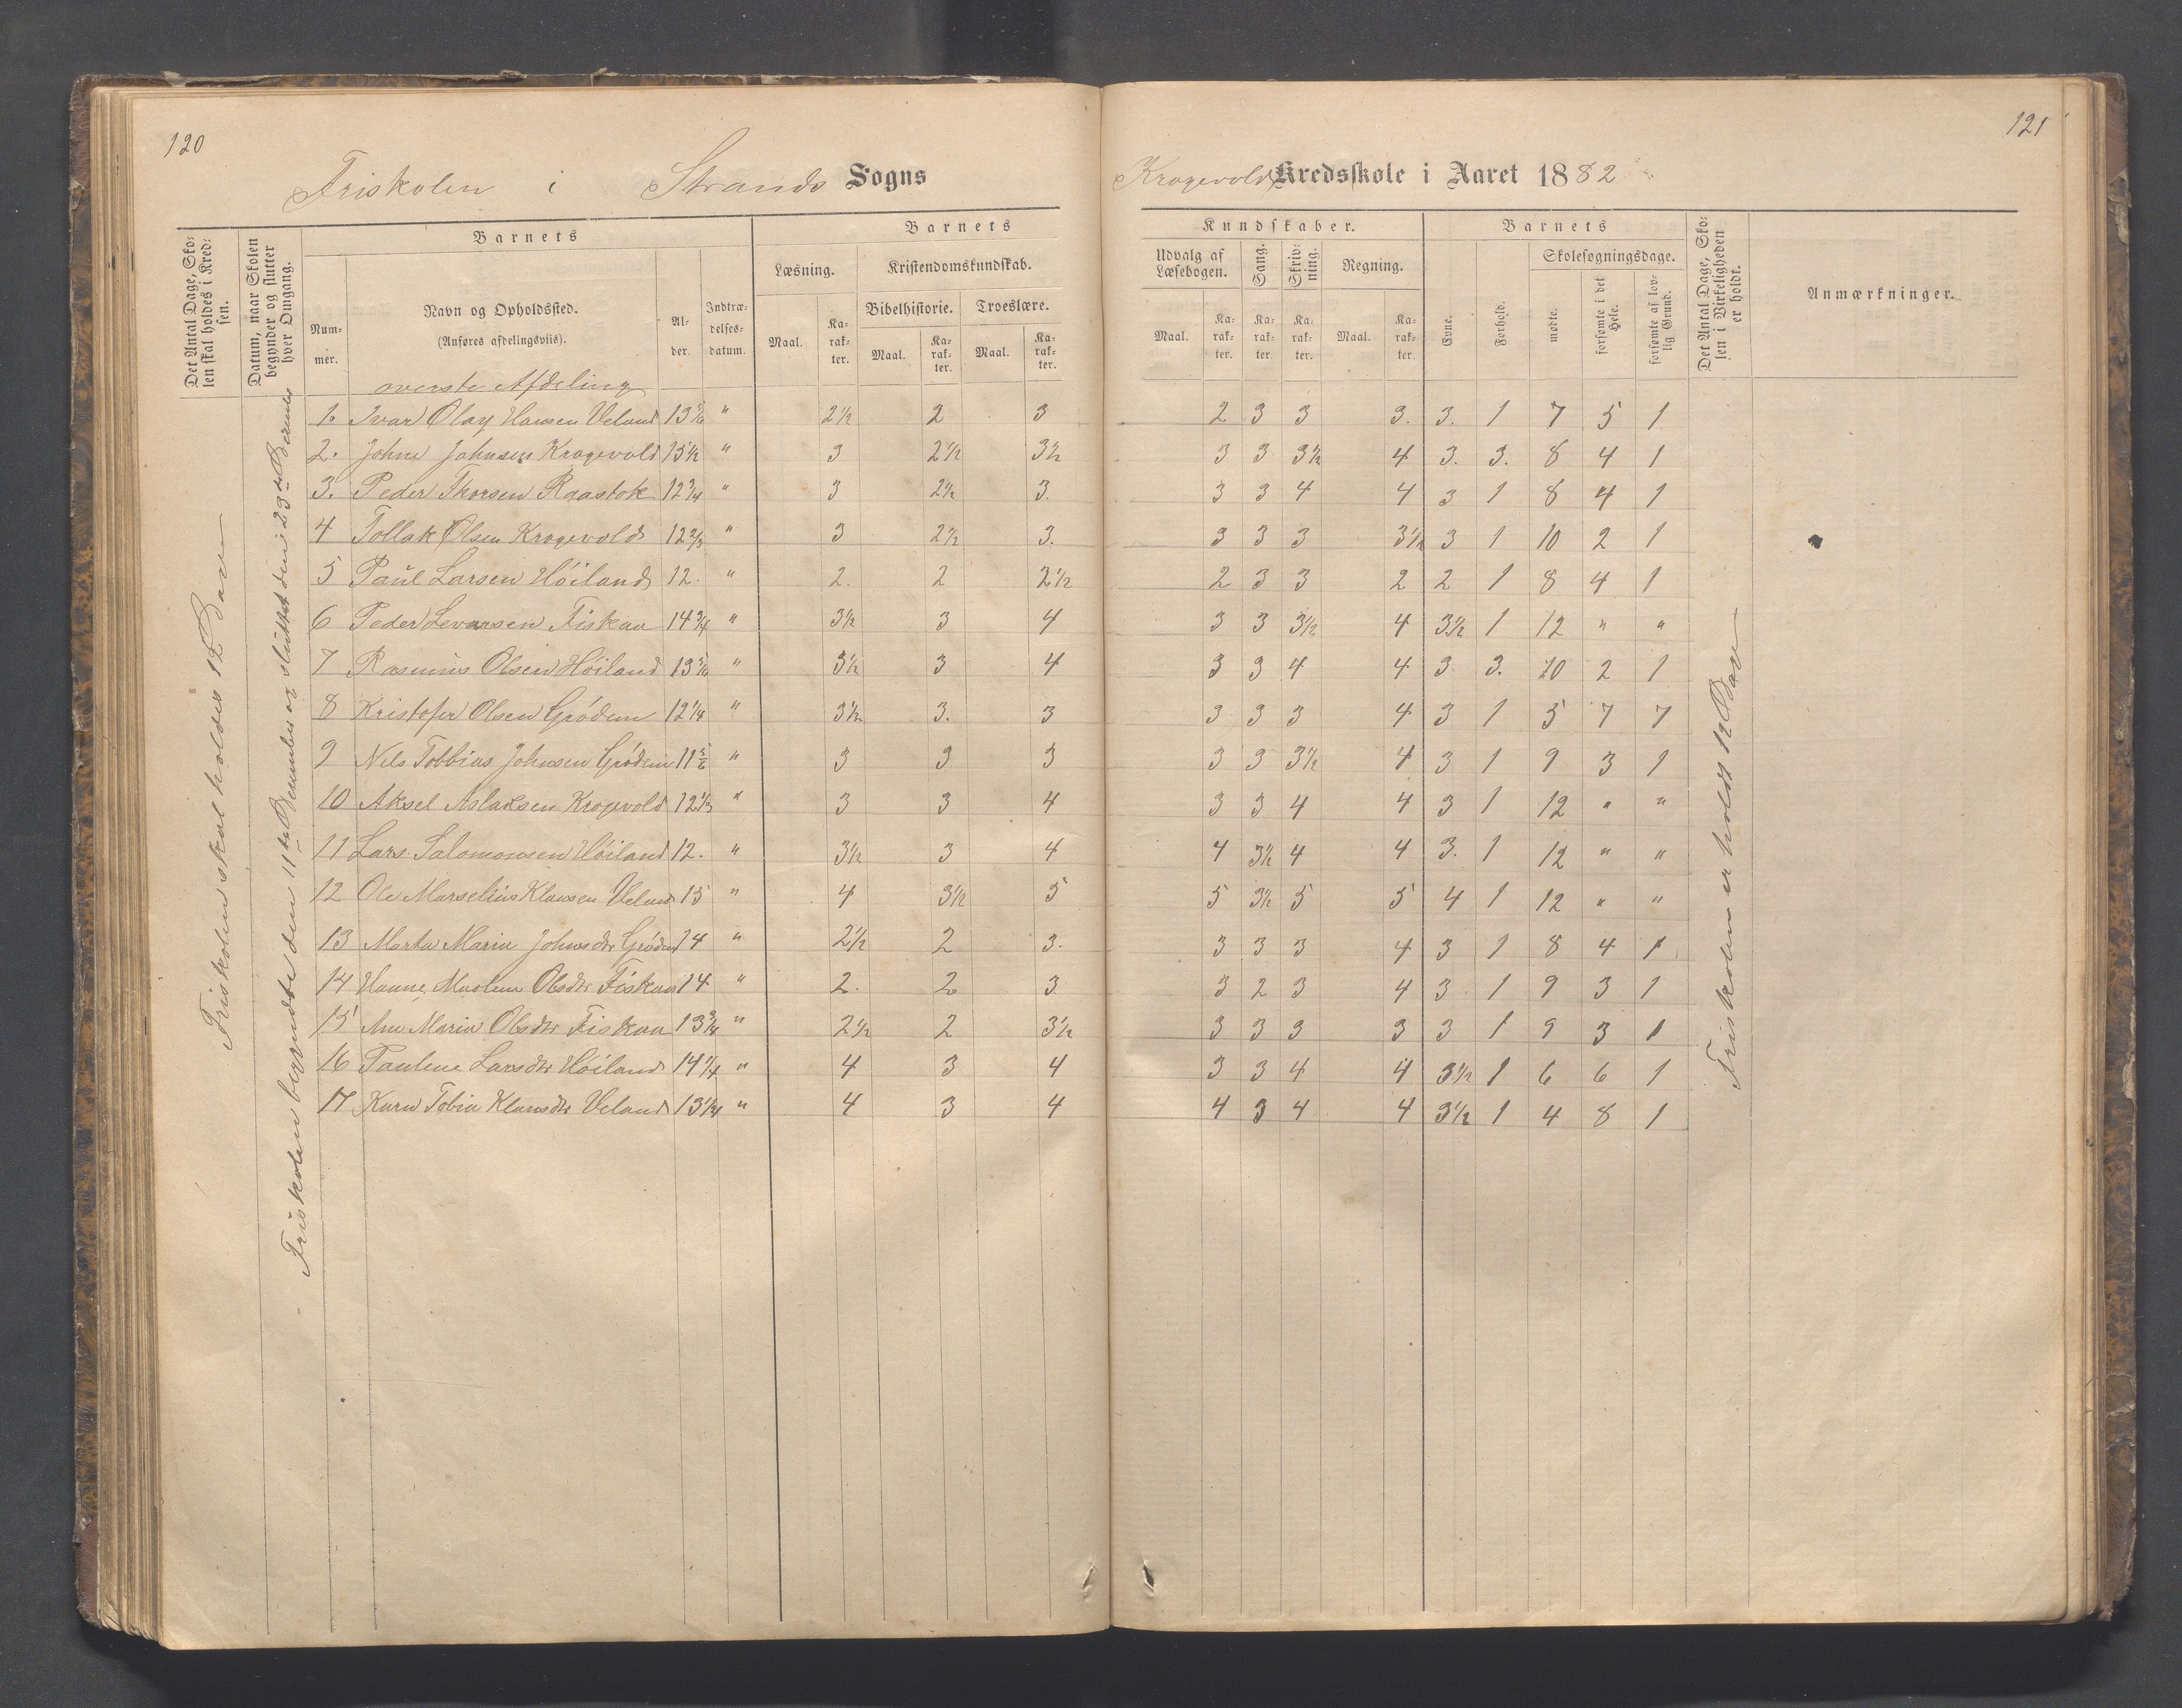 120
Friskolen i Strands Sogns
Det Antal Dage, Skolen skal holdes i Kredsen.
Datum, naar Skolen begynder og slutter hver Omgang.
Barnets
Nummer.
Navn og Opholdssted.
(Anføres afdelingsviis).
Alder.
Indtrædelsesdatum.
Barnets
Læsning.
Kristendomskundskab.
Bibelhistorie. Troeslære.
Maal. Karakter. Maal. Karakter. Maal. Karakter.
Friskolen skal holdes 12 Dage
Friskolen begyndte den 11te December og sluttet den 23de December
øverste Afdeling
1. Ivar Olay Hansen Veland 13 " 2½ 2 3
2. Johne Johnsen Krogevold 13½ " 3 2½ 3½
3. Peder Thorsen Raastok 12¾ " 3 2½ 3.
4 Tollak Olsen Krogevold 12⅔ " 3 2½ 3.
5 Paul Larsen Høiland 12. " 2. 2 2½
6 Peder Levarsen Fiskaa 14¾ " 3½ 3 4
7 Rasmus Olsen Høiland 13 " 3½ 3 4
8 Kristofer Olsen Grødem 12¼ " 3½ 3. 3
9 Nils Tobbias Johnsen Grødem 11⅚ " 3 3 3
10 Aksel Aslaksen Krogevold 12⅓ " 3 3 4
11 Lars Salomonsen Høiland 12. " 3½ 3 4
12 Ole Marselius Klausen Veland 13 " 4 3½ 5
13 Marta Marie Johnsdtr Grødem 14 " 2½ 2 3.
14 Hanne Olsdtr Fiskaa 14 " 2. 2 3
15 Ane Maria Olsdtr Fiskaa 13¾ " 2½ 2 3½
16 Pauline Larsdtr Høiland 14¼ " 4 3 4
17 Karen Tobia Klausdtr Veland 13¼ " 4 3 4
121
Krogevold Kredsskole i Aaret 1882
Kundskaber.
Udvalg af Læsebogen.
Sang.
Skrivning.
Regning.
Maal. Karakter. Karakter. Karakter. Maal. Karakter.
Barnets
Evne.
Forhold.
Skolesøgningsdage.
mødte.
forsømte i det Hele.
forsømte af lovlig Grund.
Det Antal Dage, Skolen i Virkeligheden er holdt.
Anmærkninger.
2 3 3 3. 3. 1 7 5 1
3 3 3½ 4 3. 3. 8 4 1
3 3 4 4 3 1 8 4 1
3 3 3 3½ 3 1 10 2 1
2 3 3 2 2 1 8 4 1
3 3 3½ 4 3½ 1 12 " "
3 3 4 4 3 3. 10 2 1
3 3 3 4 3 1 5 7 7
3 3 3½ 4 3 1 9 3 1
3 3 4 4 3 1 12 " "
4 3½ 4 4 3. 1 12 " "
5 3½ 5 5 4 1 12 " "
3 3 3 4 3 1 8 4 1
3 2 3 4 3 1 9 3 1
3 3 3 3 3 1 9 3 1
3 3 4 4 3½ 1 6 6 1
4 3 4 4 3½ 1 4 8 1
Friskolen er holdt 12 Dage